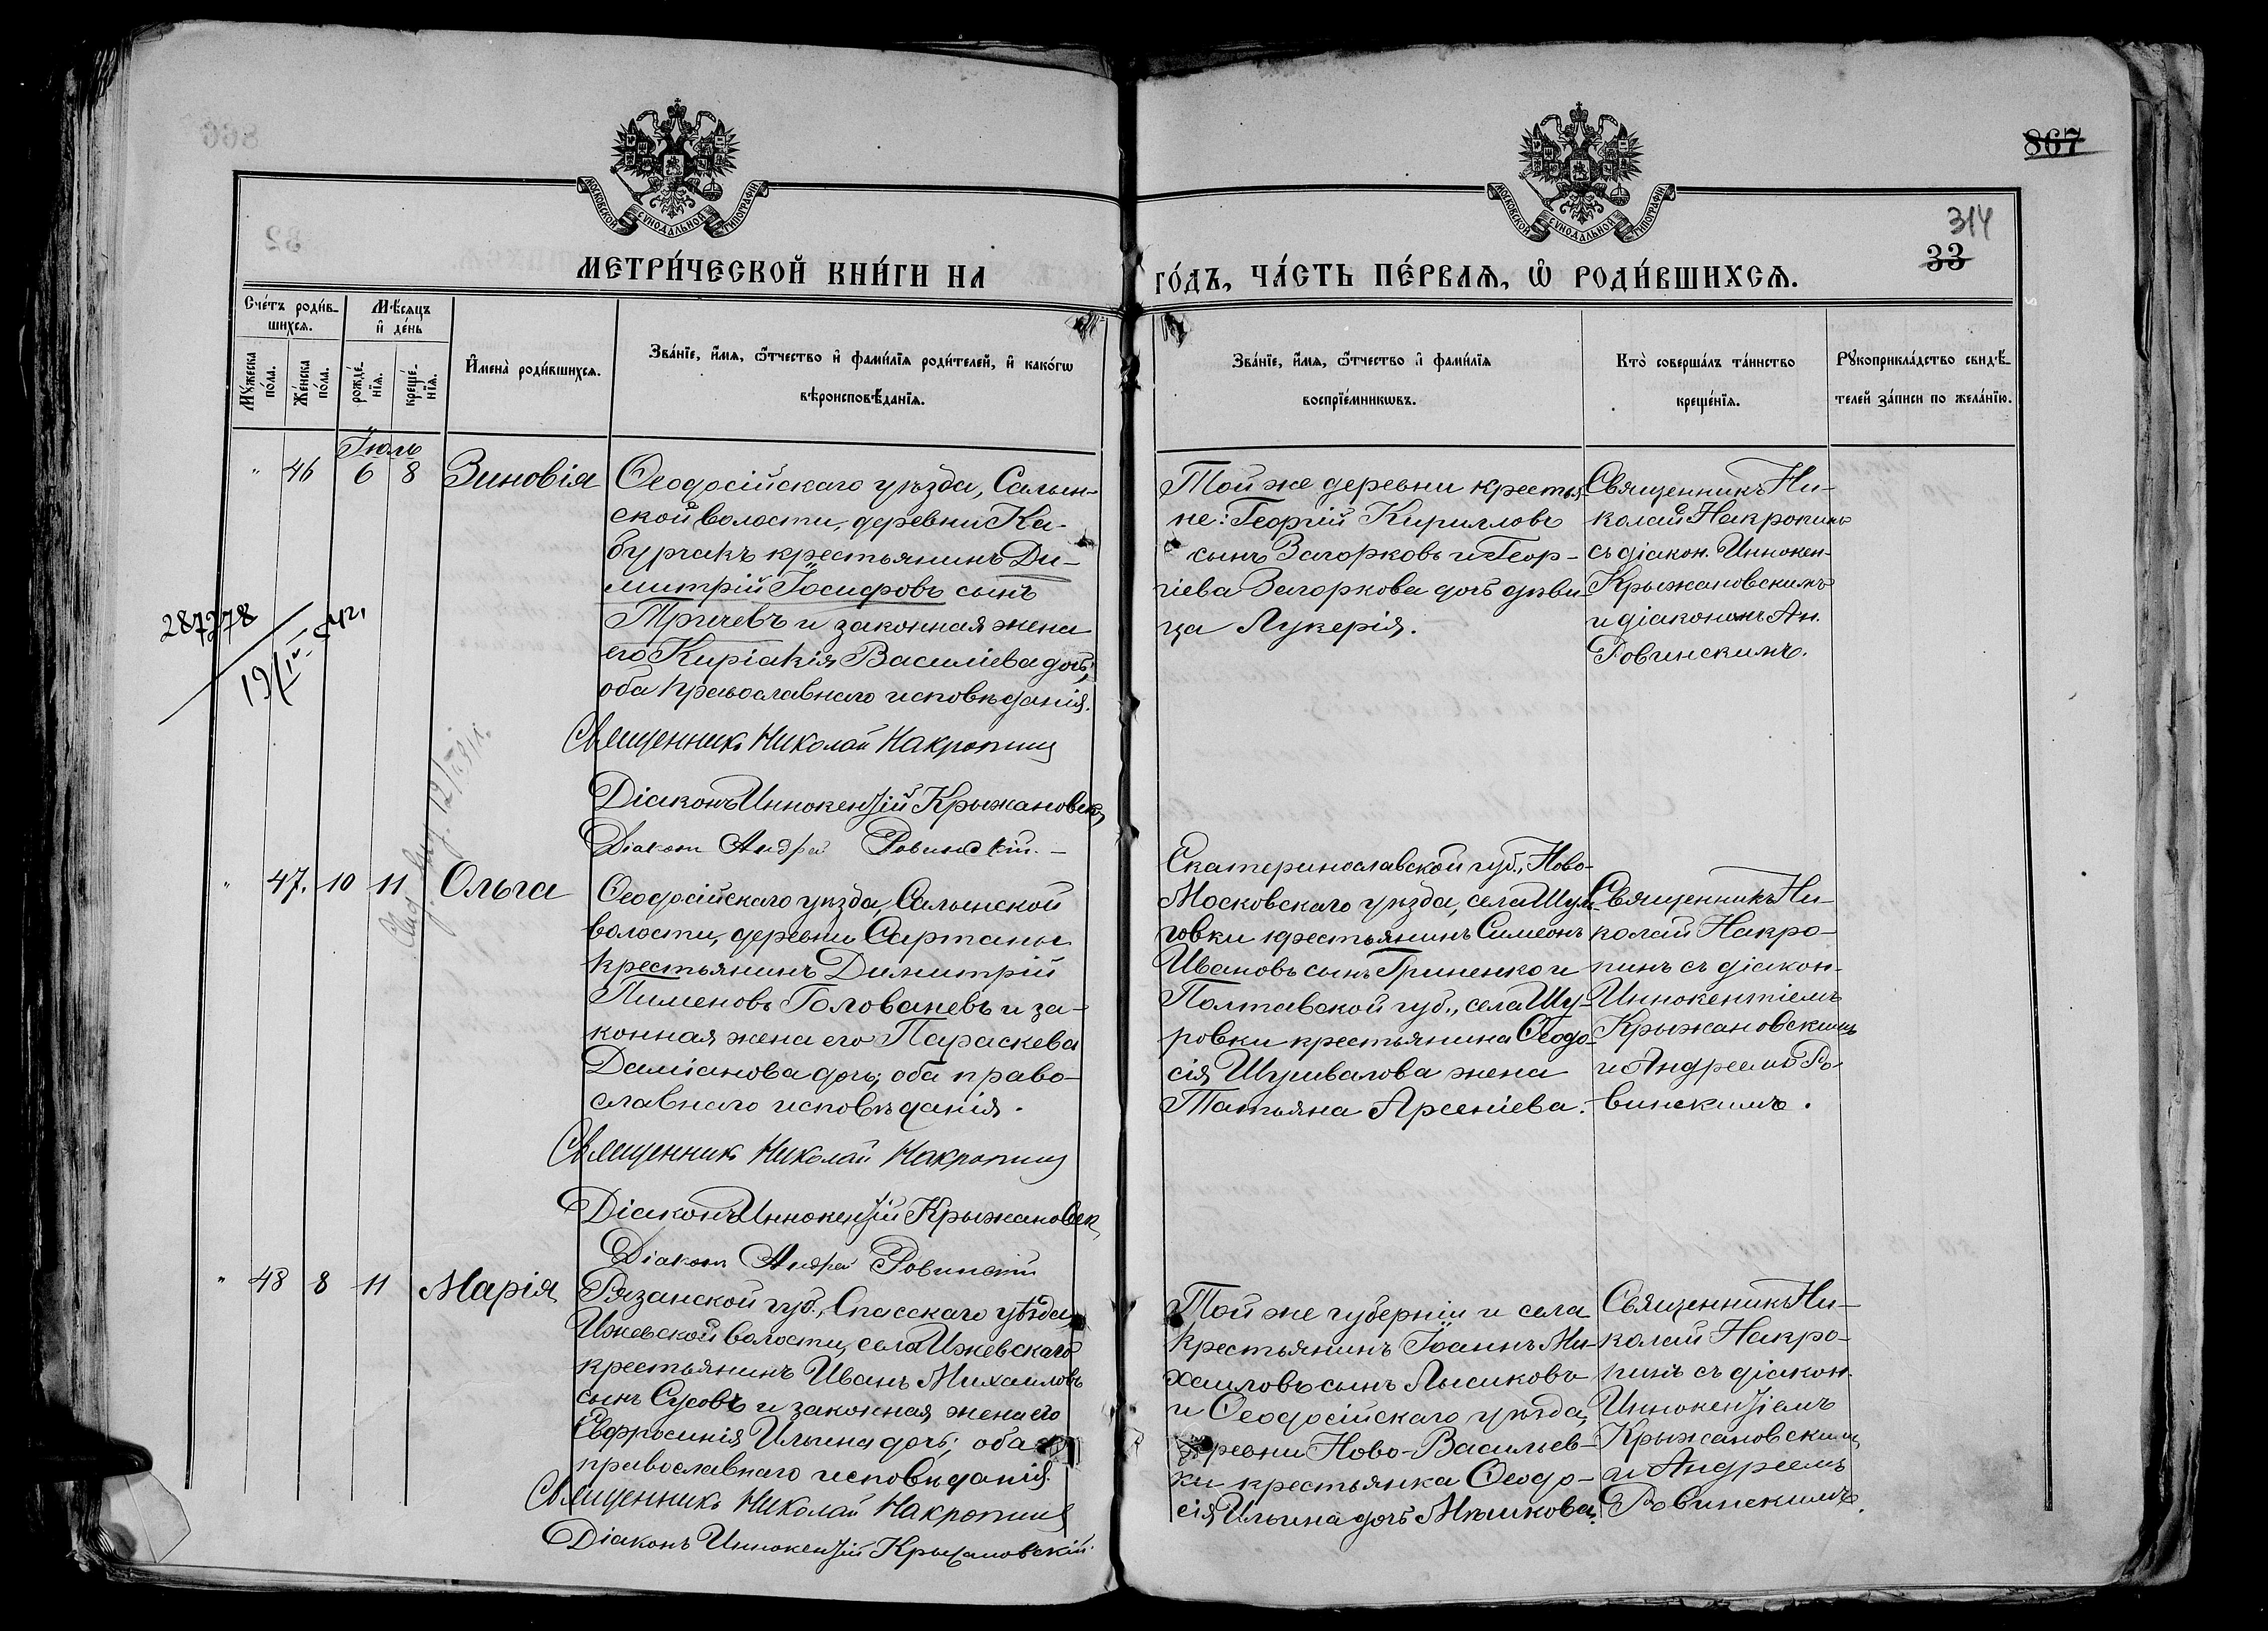 867
314
33
МОСКОВСКОЙ СѴНОДАЛЬНОЙ ТИПОГРАФІИ
МОСКОВСКОЙ СѴНОДАЛЬНОЙ ТИПОГРАФІИ
МЕТРИ́ЧЕСКОЙ КНИ́ГИ НА
ГО́ДЪ, ЧА́СТЬ ПЕ́РВАѦ, Ѡ҆ РОДИ́ВШИХСѦ.
Сче́тъ роди́в-
шихсѧ.
Мѣ́сѧцъ
и҆ де́нь
Мꙋ́жеска
по́ла.
Же́нска
по́ла.
рожде́-
нїѧ.
креще́-
нїѧ.
И҆мена̀ роди́вшихсѧ.
Зва́нїе, и҆́мѧ, ѻ҆́тчество и҆ фами́лїѧ роди́телей, и҆ како́гѡ
вѣроисповѣ́данїѧ.
Зва́нїе, и҆́мѧ, ѻ҆́тчество и҆ фами́лїѧ
воспрїе́мникѡвъ.
Кто̀ соверша́лъ та́инство
креще́нїѧ.
Рꙋкоприкла́дство свидѣ́-
телей за́писи по жела́нїю.
Іюль
" 46 6 8 Зиновія
Ѳеодосійскаго уѣзда, Салын-
ской волости, деревни Ка-
бурчакъ крестьянинъ Ди-
митрій Іосифовъ сынъ
Тричевъ и законная жена
его Киріакія Василіева дочь;
оба православнаго исповѣданія.
Священникъ Николай Накропинъ
Діаконъ Иннокентій Крыжановск
Діаконъ Андрей Ровинскій. –
Той же деревни крестья-
не: Георгій Кирилловъ
сынъ Загорковъ и Геор-
гіева Загоркова дочь дѣви-
ца Лукерія.
Священникъ Ни-
колай Накропинъ
съ діакон. Иннокен-
Крыжановскимъ
и діакономъ Ан.
Ровинскимъ.
287278
19/IV
" 47. 10 11 Ольга
Ѳеодосійскаго уѣзда, Салынской
волости, деревни Сартаны
крестьянинъ Димитрій
Пименовъ Голованевъ и за-
конная жена его Параскева
Даміанова дочь; оба право-
славнаго исповѣданія.
Священникъ Николай Накропинъ
Діаконъ Иннокентій Крыжановск
Діаконъ Андрей Ровинскій
Екатеринославской губ., Ново-
Московскаго уѣзда, села Шуль-
говки крестьянинъ Симеонъ
Ивановъ сынъ Гриненко и
Полтавской губ., села Шу-
ровки крестьянина Ѳеодо-
сія Шушвалова жена
Татьяна Арсеніева.
Священникъ Ни-
колай Накро-
пинъ съ діакон.
Иннокентіемъ
Крыжановскимъ
и Андреемъ Ро-
винскимъ.
" 48 8 11 Марія
Рязанской губ., Спасскаго уѣзда
Ижевской волости, села Ижевскаго
крестьянинъ Иванъ Михаиловъ
сынъ Сусовъ и законная жена его
Евфросинія Ильина дочь; оба
православнаго исповѣданія.
Священникъ Николай Накропинъ
Діаконъ Иннокентій Крыжановскій.
Той же губерніи и села
крестьянинъ Іоаннъ Ми-
хаиловъ сынъ Лысиковъ
и Ѳеодосійскаго уѣзда,
деревни Ново-Васильев-
ки крестьянка Ѳеодо-
сія Ильина дочь Мѣшкова.
Священникъ Ни-
колай Накро-
пинъ съ діакон.
Иннокентіемъ
Крыжановскимъ
и Андреемъ
Ровинскимъ.